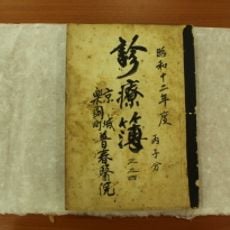 昭和十二年度 丙子分
診療簿 之三四
京城
樂園町 普春醫院